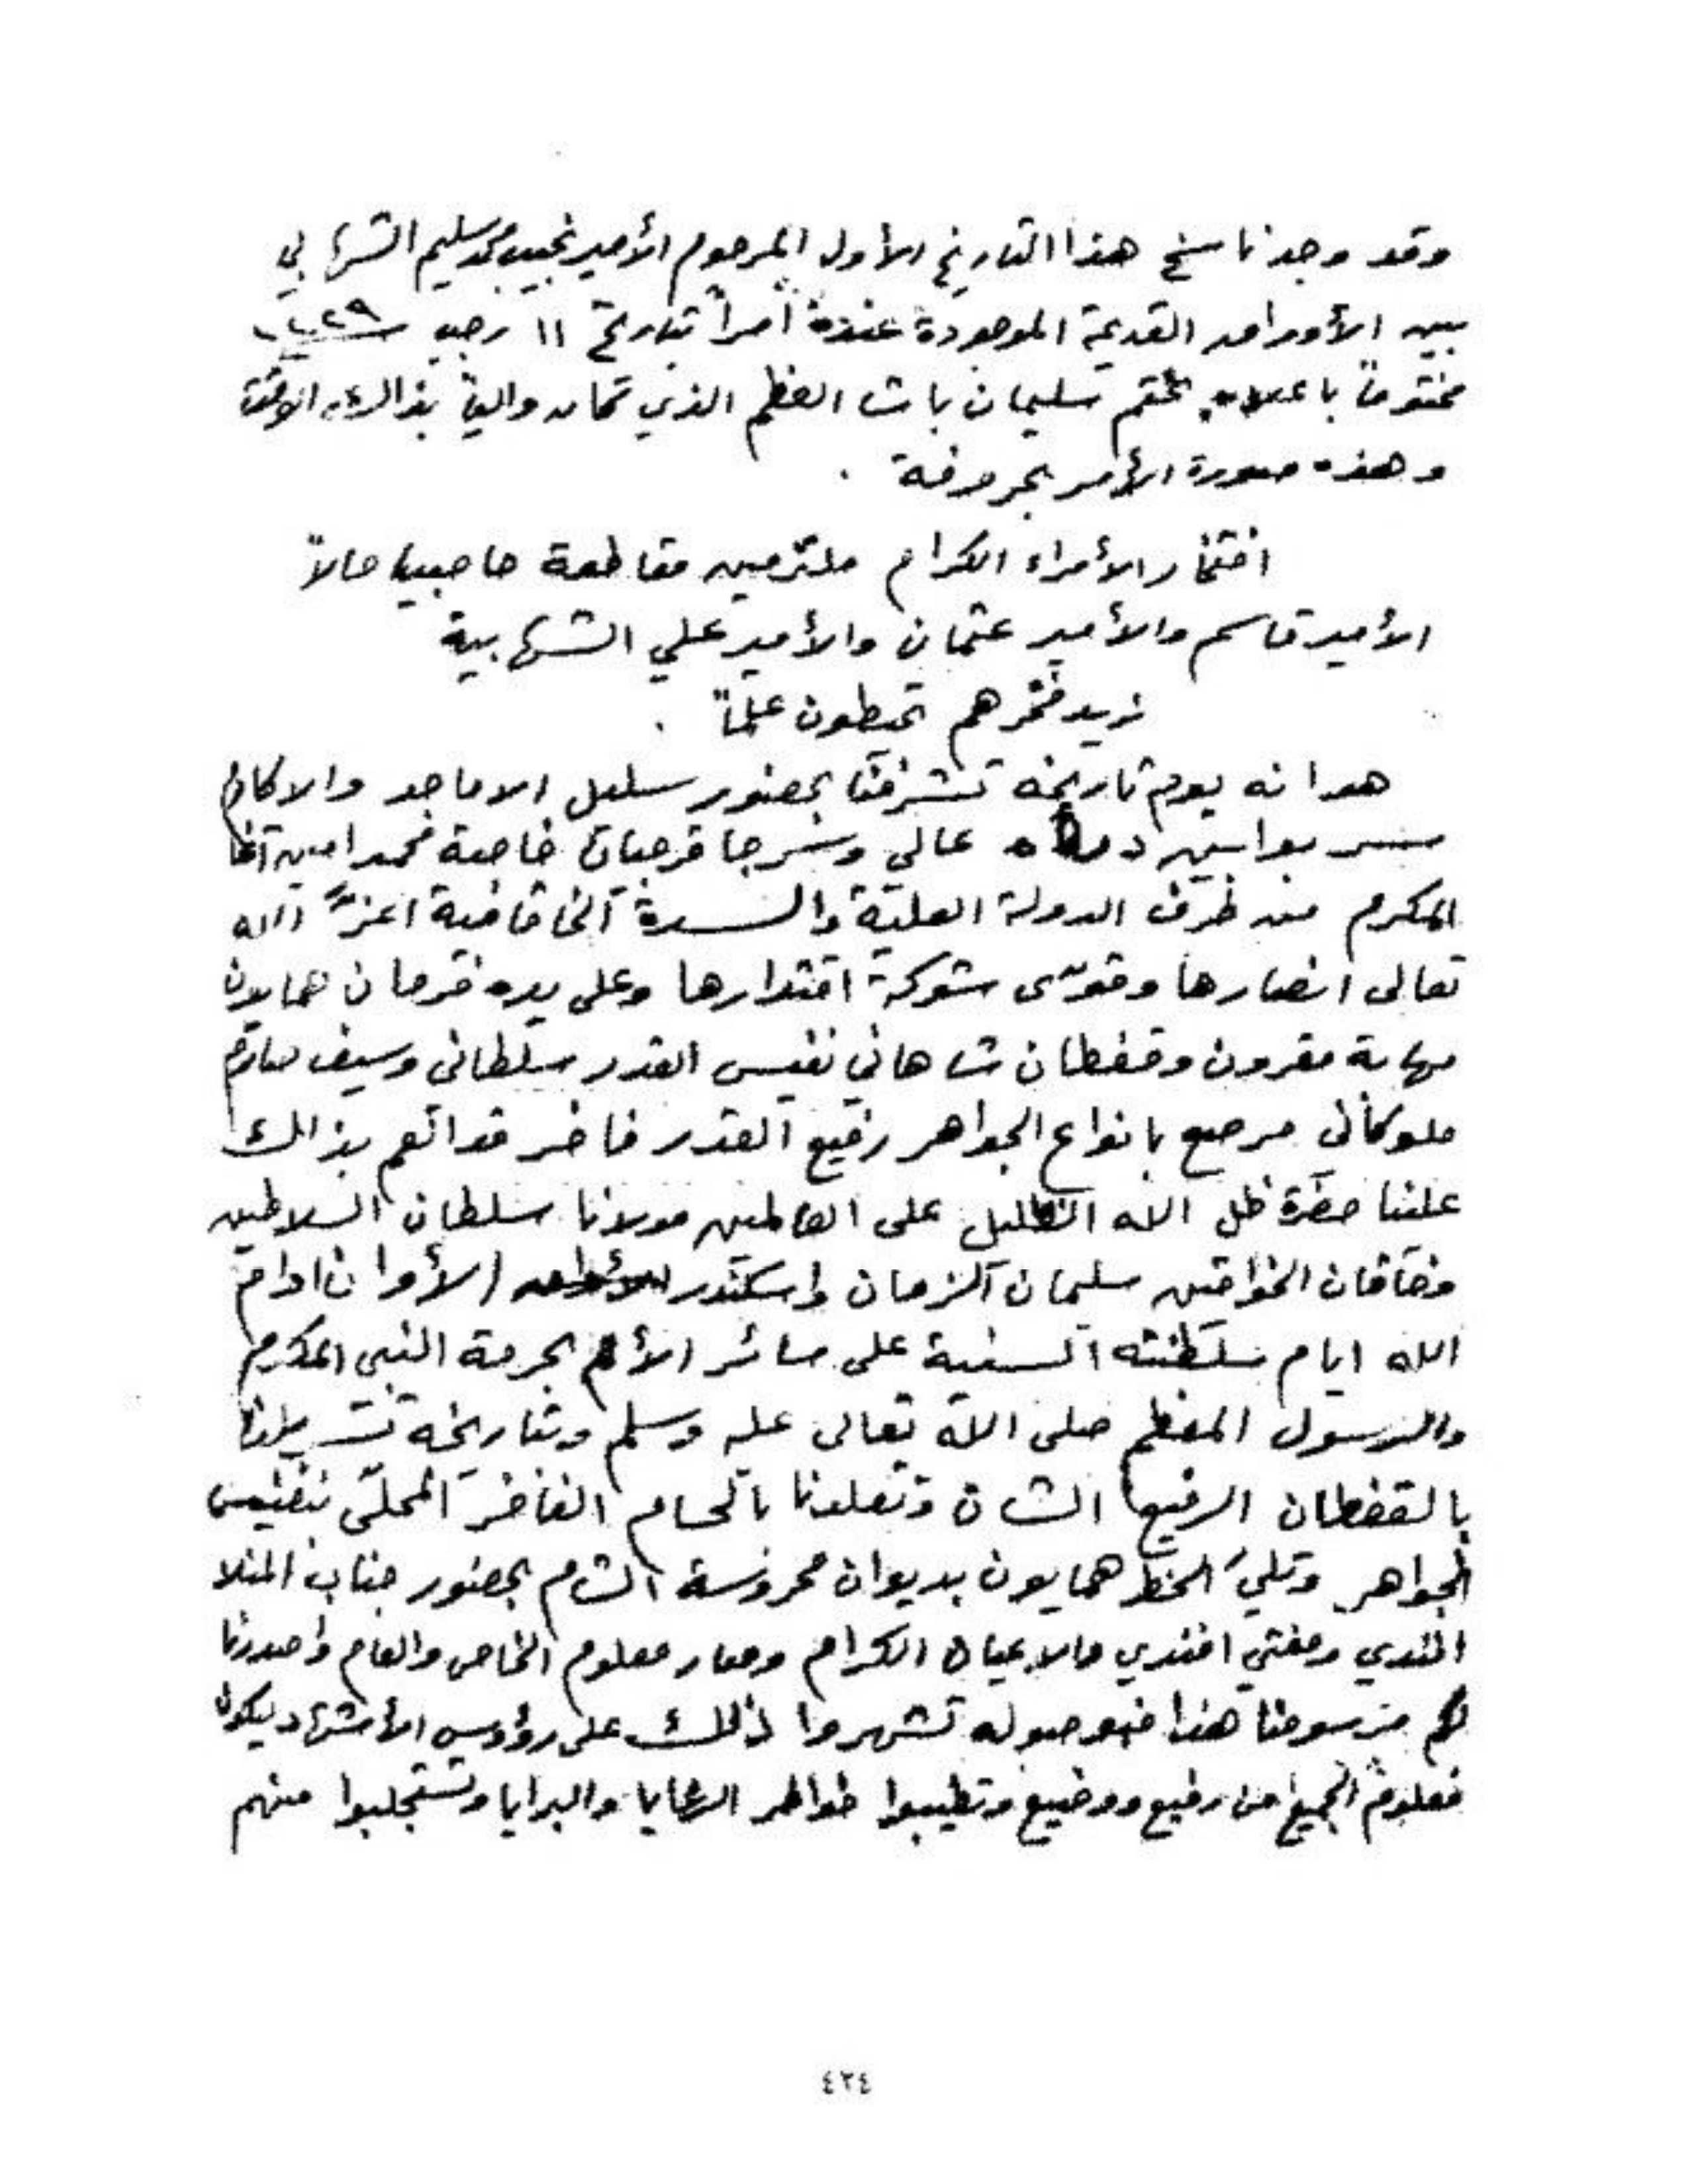 وقد وجد ناسخ هذا التاريخ الأول المرحوم الأمير نجيب محمد سليم الشهابي
بين الأوراق القديمة الموجودة عنده أمراً بتاريخ ١١ رجب
مختوماً باعلاه بختم سليمان باشا العظم الذي كان والياً بذالك الوقت
وهذه صورة الأمر بحروفة .
افتخار الأمراء الكرام ملتزمين مقاطعة حاصبيا حالاً
الأمير قاسم والأمير عثمان والأمير علي الشهابية
زيد فخرهم تحيطون علماً .
هو انه يوم تاريخه تشرفنا بحضور سليل الاماجد والاكارم
بوابين عالي وسرجا قرجيان خاصة محمد امين آغا
المكرم من طرف الدولة العلية والسدة الخاقانية اعزّ الله
تعالى انصارها وقوّى شوكة اقتدارها وعلى يده فرمان همايون
مهابة مقرون وقفطان شاهاني نفيس القدر سلطاني وسيف صارم
ملوكاني مرصع بانواع الجواهر رفيع القدر فاخر قد انعم بذالك
علينا حضرة ظل الله الظليل على العالمين مولانا سلطان السلاطين
وخاقان الخواقين سليمان الزمان واسكندر الأوان ادام
الله ايام سلطنته السنية على سائر الأمم بحرمة النبي المكرم
والرسول المعظم صلى الله تعالى عليه وسلم وبتاريخه تسربلنا
بالقفطان الرفيع الشان وتقلدنا بالحسام الفاخر المحلّى بنفيس
الجواهر وتلي الخط همايون بديوان محروسة الشام بحضور جناب المنلا
افندي ومفتي افندي والاعيان الكرام وصار معلوم الخاص والعام واصدرنا
لكم مرسومنا هذا فبوصوله تشهروا ذلك على رؤوس الأشهاد ليكون
معلوم الجميع من رفيع ووضيع وتطيبوا خواطر الرعايا والبرايا وتستجلبوا منهم
٤٢٤